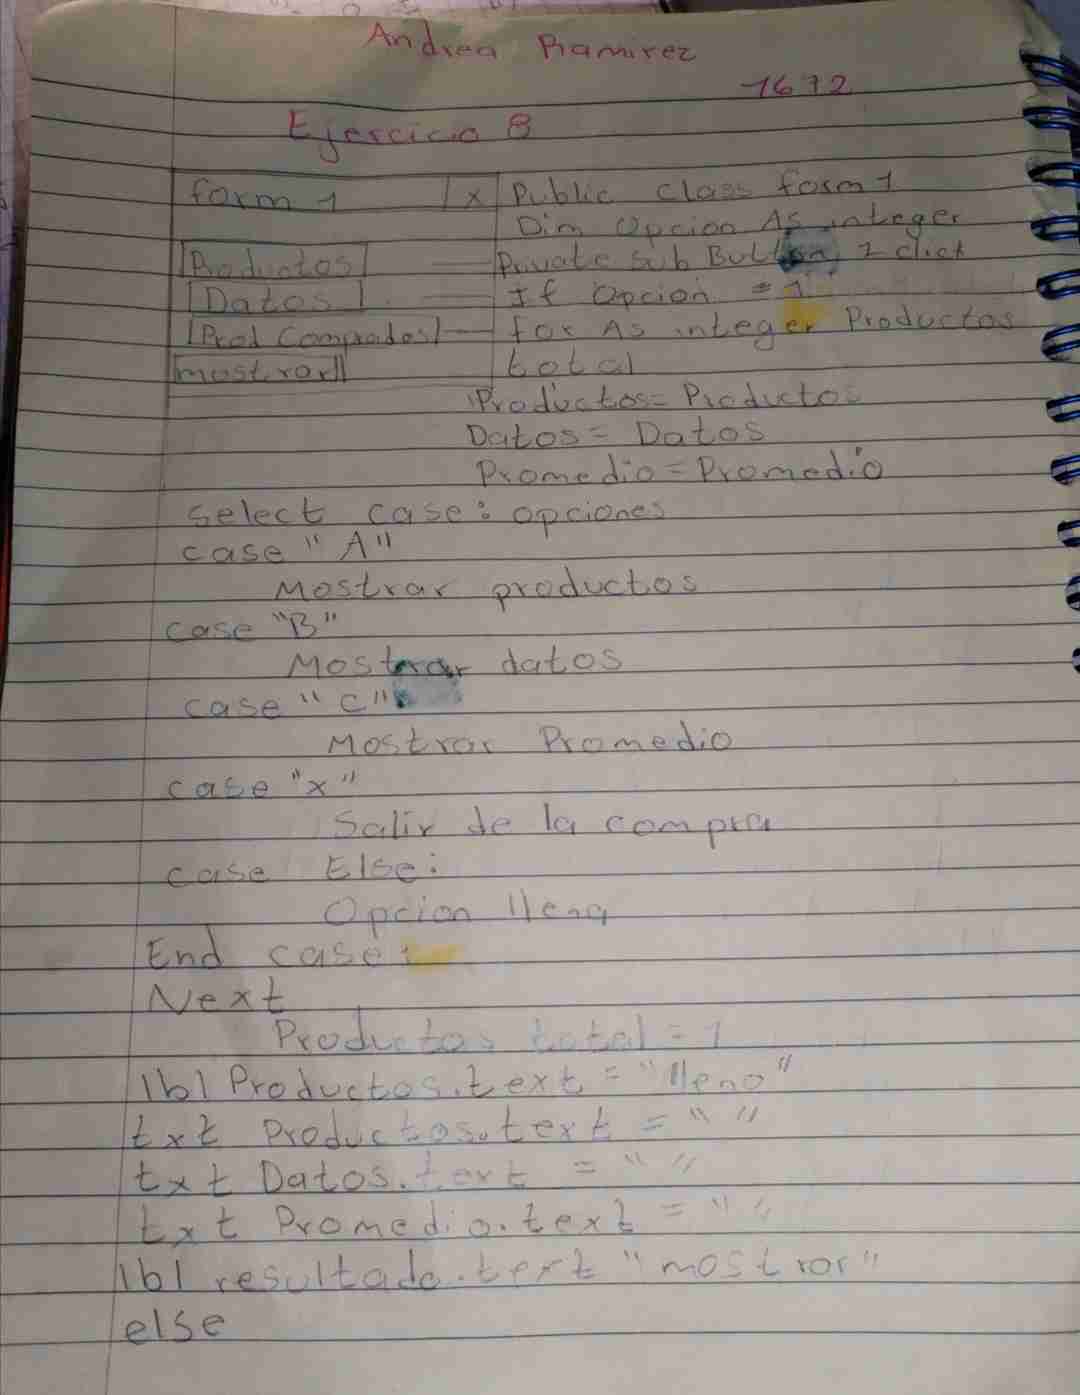 Andrea Ramirez
1672
Ejercicio 8
form 1 x Public class form 1
Dim Opcion As integer
Productos Private sub Button 1 click
Datos If Opcion = 1
Prod Comprados for As integer Productos
mostrar total
Productos = Productos
Datos = Datos
Promedio = Promedio
Select case: opciones
case "A"
Mostrar productos
case "B"
Mostrar datos
case "C"
Mostrar Promedio
case "x"
Salir de la compra
case Else:
Opcion llena
End case:
Next
Productos total = 1
lbl Productos.text = "lleno"
txt Productos.text = " "
txt Datos.text = " "
txt Promedio.text = " "
lbl resultado.text "mostrar"
else